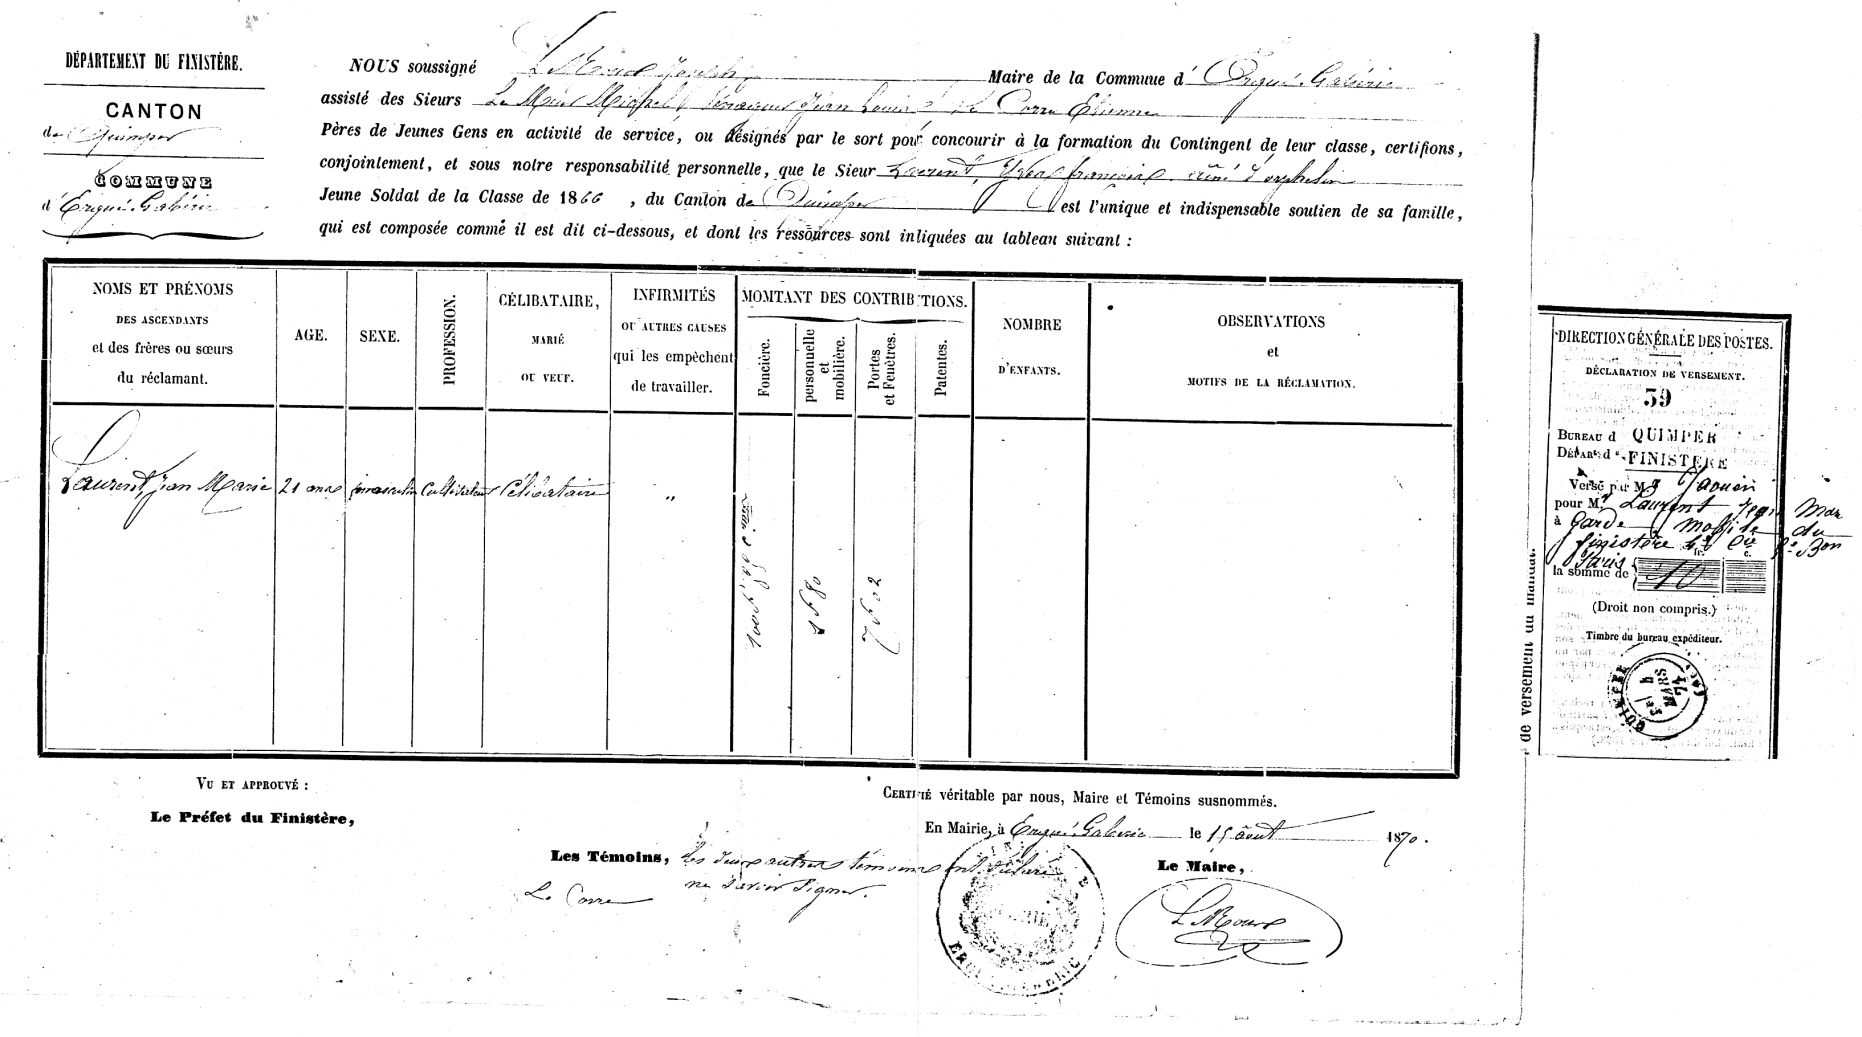 DÉPARTEMENT DU FINISTÈRE.
CANTON
de Quimper
COMMUNE
d'Ergué-Gabéric
NOUS soussigné Joseph Maire de la Commune d' Ergué-Gabéric
assisté des Sieurs Le Meur Michel, Jean Louis, Le Corre Etienne
Pères de Jeunes Gens en activité de service, ou désignés par le sort pour concourir à la formation du Contingent de leur classe, certifions,
conjointement, et sous notre responsabilité personnelle, que le Sieur Laurent, Yves françois aîné d'orphelin
Jeune Soldat de la Classe de 1866 , du Canton de Quimper est l'unique et indispensable soutien de sa famille,
qui est composée comme il est dit ci-dessous, et dont les ressources sont inliquées au tableau suivant :
NOMS ET PRÉNOMS
DES ASCENDANTS
et des frères ou sœurs
du réclamant.
AGE.
SEXE.
PROFESSION.
CÉLIBATAIRE,
MARIÉ
OU VEUF.
INFIRMITÉS
OU AUTRES CAUSES
qui les empèchent
de travailler.
MOMTANT DES CONTRIBUTIONS.
Foncière.
personnelle
et
mobilière.
Portes
et Fenêtres.
Patentes.
NOMBRE
D'ENFANTS.
OBSERVATIONS
et
MOTIFS DE LA RÉCLAMATION.
Laurent, Jean Marie 21 ans masculin Cultivateur Célibataire "
7f 02
VU ET APPROUVÉ :
Le Préfet du Finistère,
CERTIFIÉ véritable par nous, Maire et Témoins susnommés.
En Mairie, à Ergué-Gabéric le 15 août 1870.
Les Témoins, les deux autres témoins ont déclaré
ne savoir signer.
Le Corre
Le Maire,
DIRECTION GÉNÉRALE DES POSTES.
DÉCLARATION DE VERSEMENT.
39
BUREAU d QUIMPER
DÉPART d FINISTERE
Versé par M. Jaouen
pour Mr Laurent Jean Mar
à Garde Mobile du
finistère 4e Cie 2e Bon
Paris
fr. c.
la somme de 10
(Droit non compris.)
Timbre du bureau expéditeur.
QUIMPER
4
MARS
71
de versement du mandat.